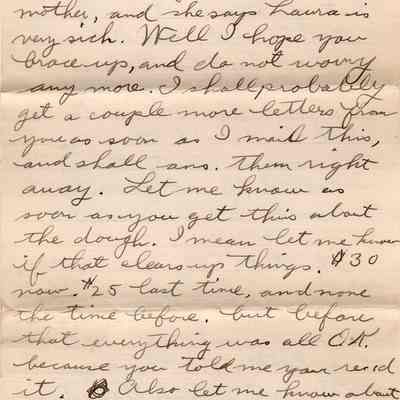 mother, and she says Laura is
very sick. Well I hope you
brace up, and do not worry
any more. I shall probably
get a couple more letters from
you as soon as I mail this,
and shall ans. them right
away. Let me know as
soon as you get this about
the dough. I mean let me know
if that clears up things. $30
now. $25 last time, and none
the time before. but before
that everything was all OK.
because you told me your rec'd
it. Also let me know about